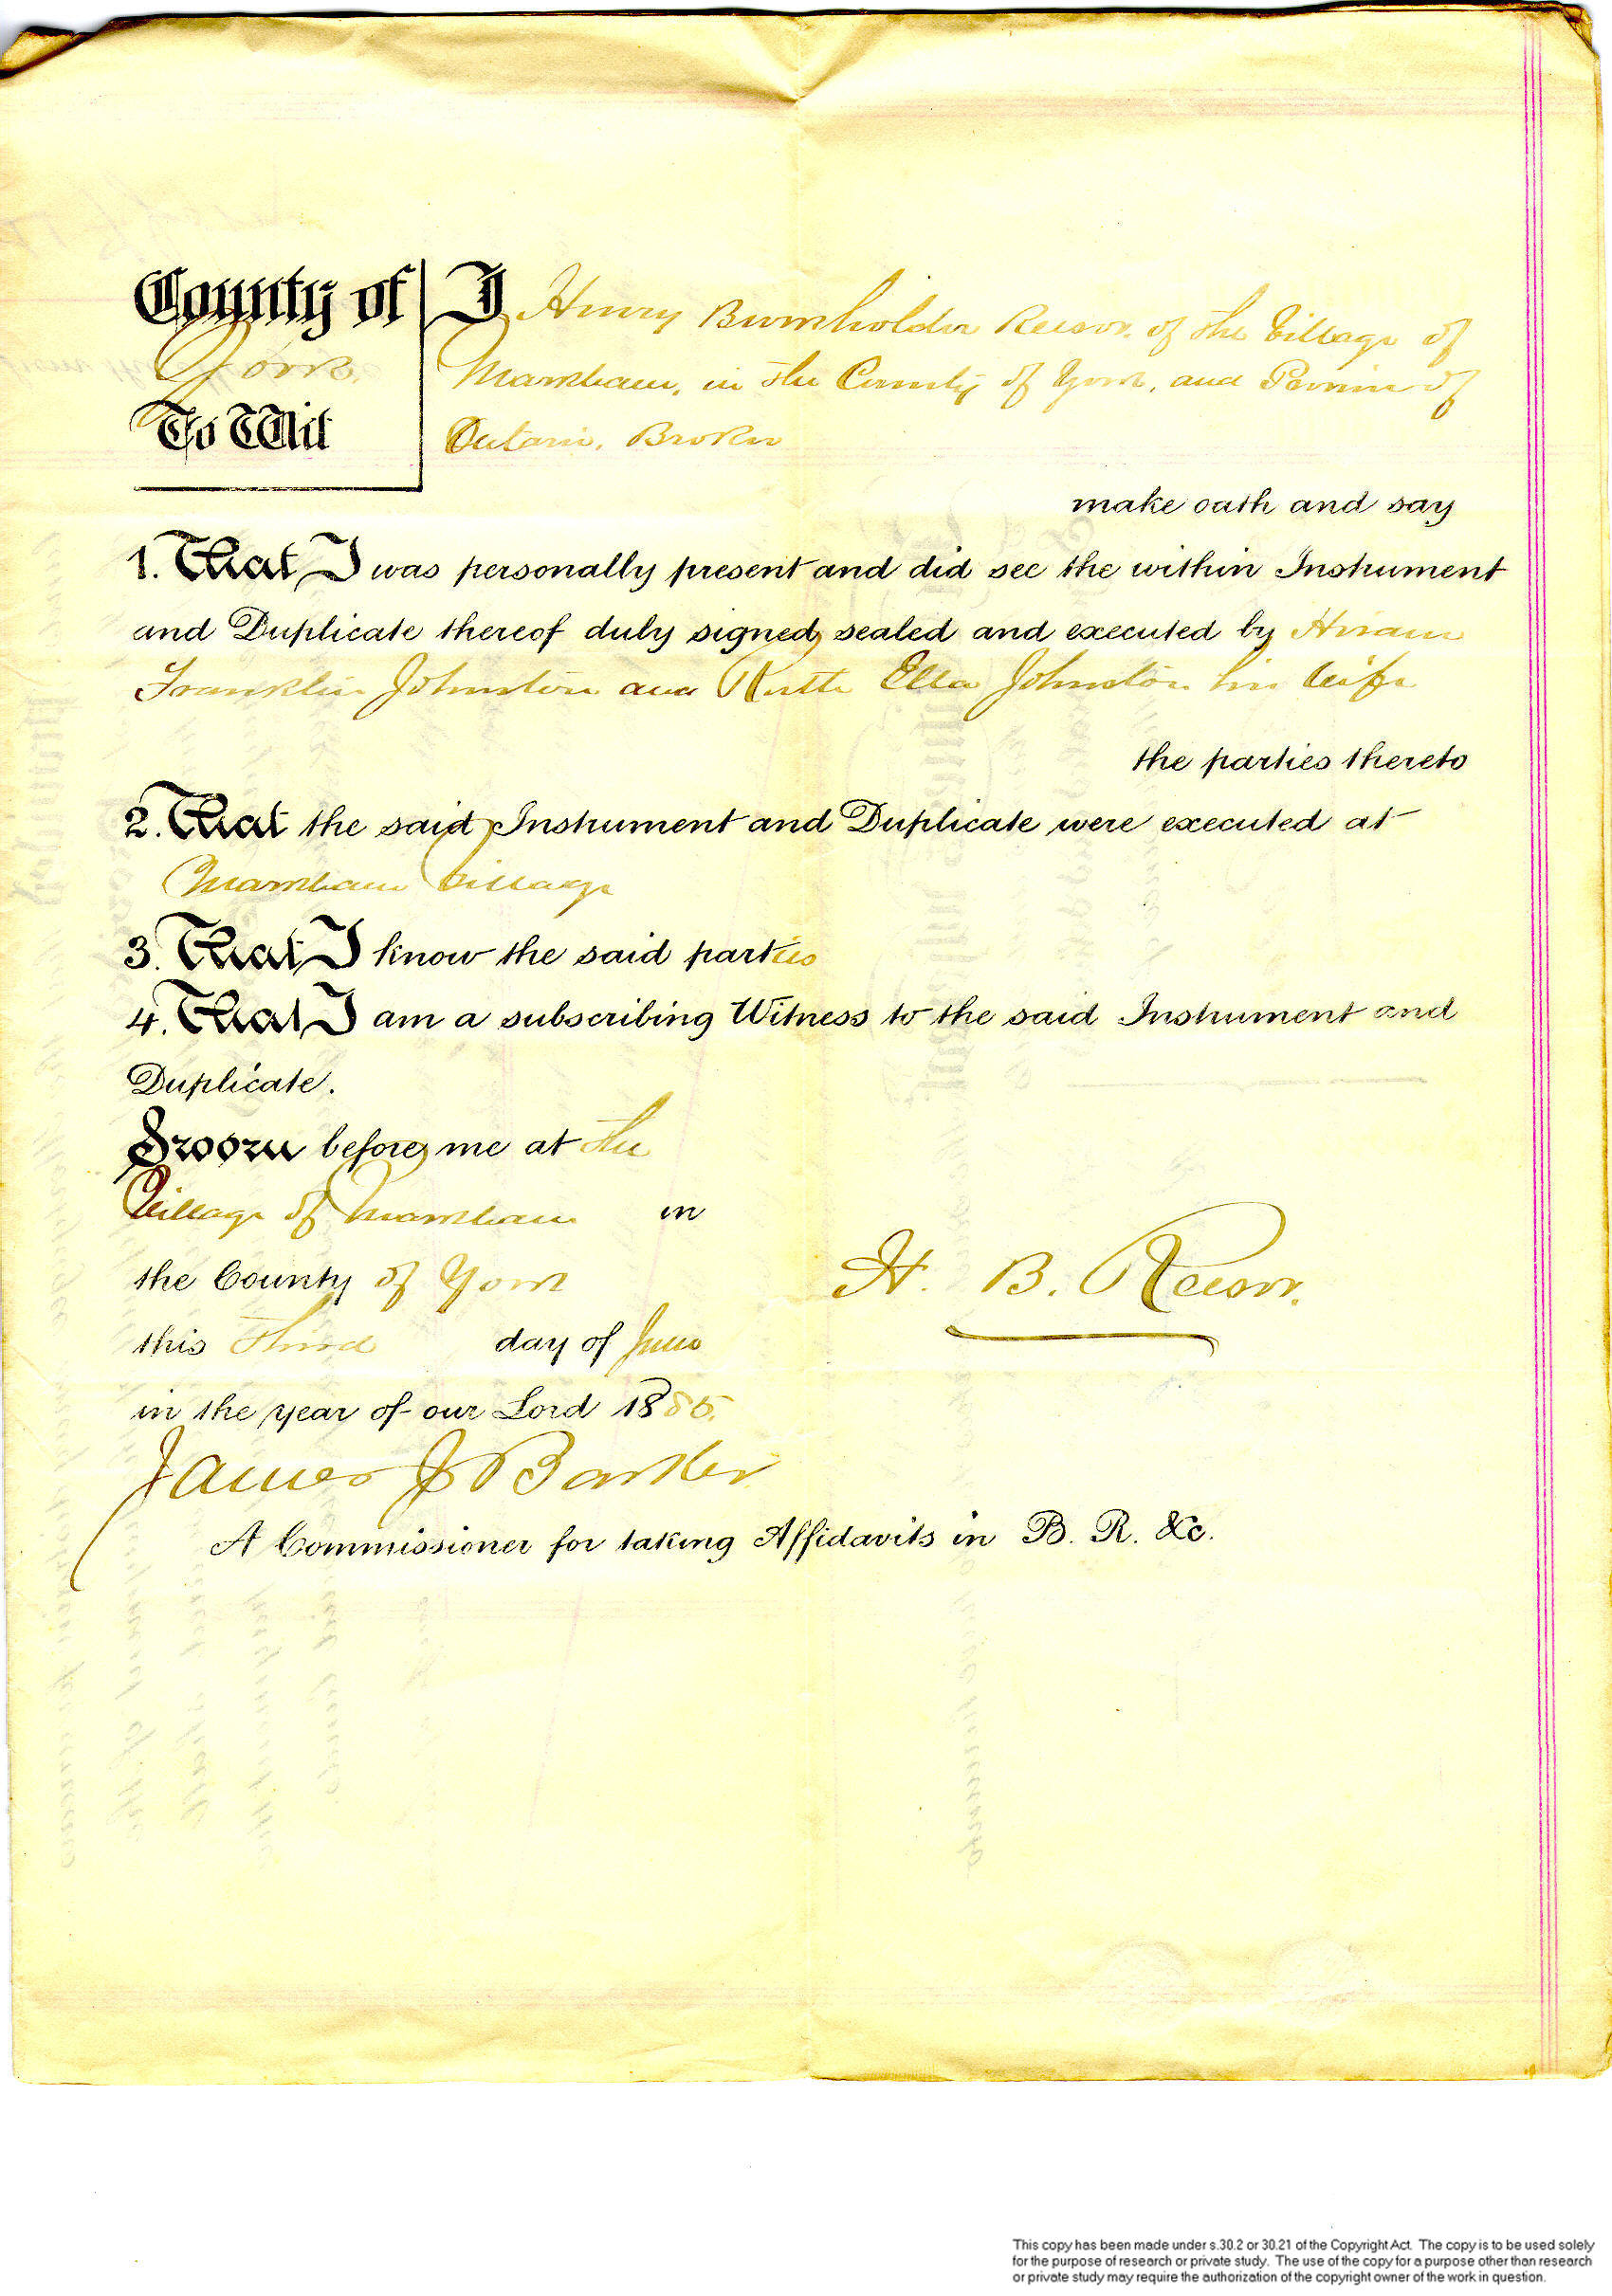 County of
York
To Wit
I Henry Burkholder Reesor of the Village of
Markham, in the County of York, and Province of
Ontario, Broker
make oath and say
1. That I was personally present and did see the within Instrument
and Duplicate thereof duly signed, sealed and executed by Hiram
Franklin Johnston and Ella Johnston his Wife
the parties thereto
2. That the said Instrument and Duplicate were executed at
Markham Village
3. That I know the said parties
4. That I am a subscribing Witness to the said Instrument and
Duplicate.
Sworn before me at the
Village of Markham in
the County of York
this Third day of June
in the year of our Lord 1885.
H. B. Reesor.
James J Barker
A Commissioner for taking Affidavits in B. R. &c.
This copy has been made under s.30.2 or 30.21 of the Copyright Act. The copy is to be used solely
for the purpose of research or private study. The use of the copy for a purpose other than research
or private study may require the authorization of the copyright owner of the work in question.